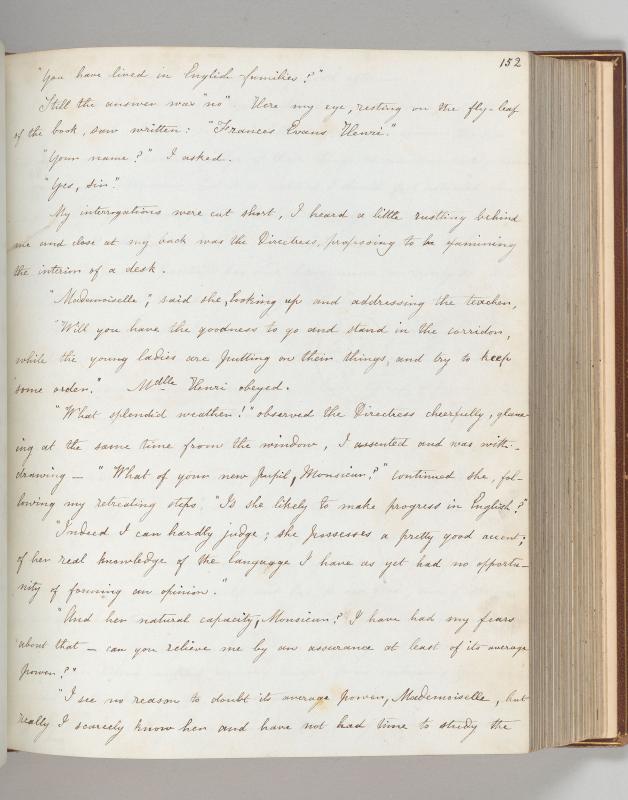 152
"You have lived in English families?"
Still the answer was "no". Here my eye, resting on the fly-leaf
of the book, saw written: "Frances Evans Henri".
"Your name?" I asked.
"Yes, sir".
My interrogations were cut short, I heard a little rustling behind
me and close at my back was the Directress, professing to be examining
the interior of a desk.
"Mademoiselle", said she, looking up and addressing the teacher,
"Will you have the goodness to go and stand in the corridor,
while the young ladies are putting on their things, and try to keep
some order." Mdlle Henri obeyed.
"What splendid weather!" observed the Directress cheerfully, glanc-
ing at the same time from the window, I assented and was with-
drawing — "What of your new pupil, Monsieur?" continued she, fol-
lowing my retreating steps. "Is she likely to make progress in English?"
"Indeed I can hardly judge; she possesses a pretty good accent;
of her real knowledge of the language I have as yet had no opportu-
nity of forming an opinion."
"And her natural capacity, Monsieur? I have had my fears
about that — can you relieve me by an assurance at least of its average
power?"
"I see no reason to doubt its average power, Mademoiselle, but
really I scarcely know her and have not had time to study the